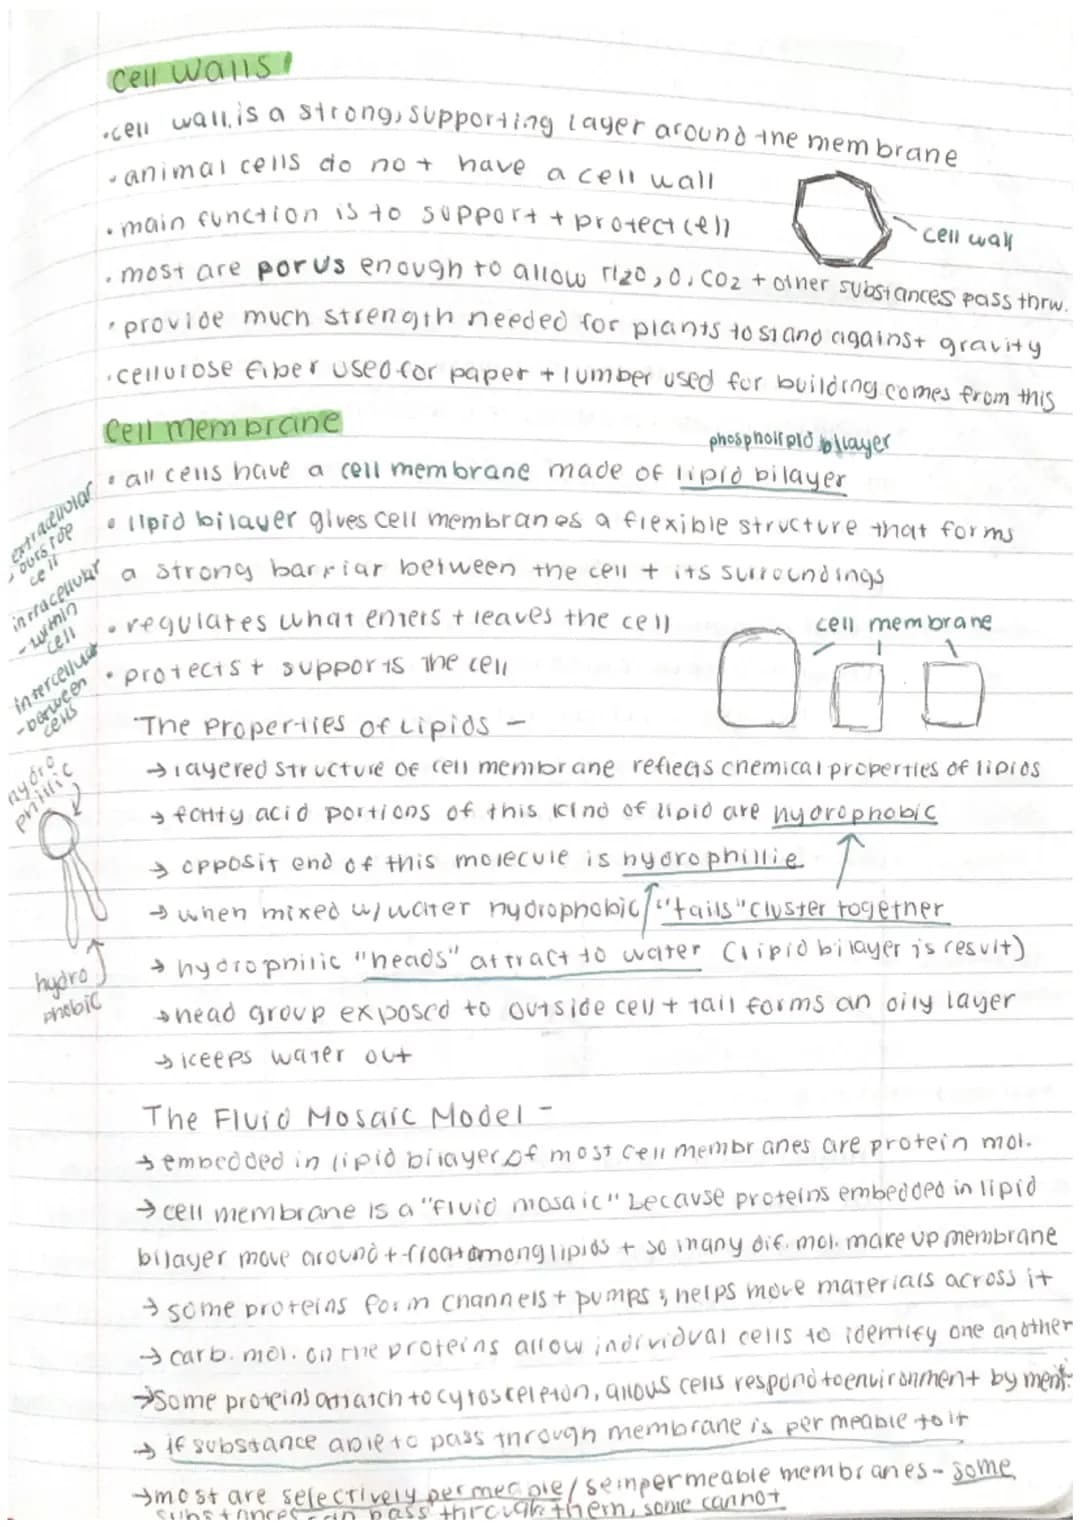 Cell Walls
•cell wall is a strong, supporting layer around the membrane
•animal cells do not have a cell wall
•main function is to support + protect cell
cell wall
•most are porus enough to allow H20, O, CO2 + other substances pass thrw.
•provide much strength needed for plants to stand against gravity
•cellulose fiber used for paper + lumber used for building comes from this
Cell membrane
phospholipid bilayer
•all cells have a cell membrane made of lipid bilayer
•lipid bilayer gives cell membranes a flexible structure that forms
a strong barriar between the cell + its surroundings
•regulates what enters + leaves the cell
cell membrane
•protects + supports the cell
extracellular
- outside
cell
intracellular
- within
cell
intercellular
- between
cells
The Properties of Lipids -
→layered structure of cell membrane reflects chemical properties of lipids
→fatty acid portions of this kind of lipid are hydrophobic
→opposit end of this molecule is hydrophillie
→when mixed w/ water hydrophobic "tails" cluster together
→hydrophilic "heads" attract to water (lipid bilayer is result)
→head group exposed to outside cell + tail forms an oily layer
→keeps water out
hydro
philic
hydro
phobic
The Fluid Mosaic Model -
→embedded in lipid bilayer of most cell membranes are protein mol.
→cell membrane is a "fluid mosaic" because proteins embedded in lipid
bilayer move around + float among lipids + so many dif. mol. make up membrane
→some proteins form channels + pumps ; helps move materials across it
→carb. mol. on the proteins allow individual cells to identify one another
→some proteins attatch to cytosceleton, allows cells respond to environment by
→if substance able to pass through membrane is permeable to it
→most are selectively permeable / seimpermeable membranes - some
substances can pass through them, some cannot